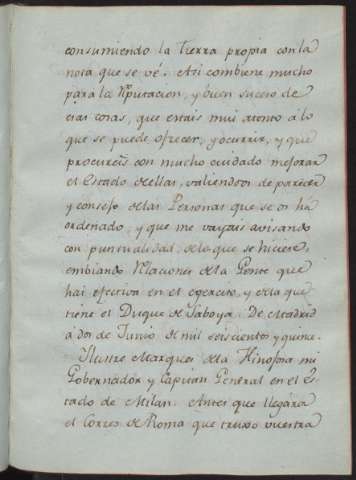 consumiendo la tierra propia con la
nota que se vé. Asi combiene mucho
para la Reputacion, y buen suceso de
esas cosas, que esteis mui atento á lo
que se puede ofrecer, y ocurrir, y que
procureis con mucho cuidado mejorar
el Estado de ellas, valiendoos de parecer
y consejo de las Personas que se os há
ordenado, y que me vayais avisando
con puntualidad, de lo que se hiciere,
embiando Relaciones de la Gente que
hai efectiva en el egercito, y de la que
tiene el Duque de Saboya. De Madrid
á dos de Junio de mil seiscientos y quince.
Ylustre Marques de la Hinojosa mi
Gobernador y Capitan General en el Es-
tado de Milan. Antes que llegára
el Correo de Roma que truxo vuestra